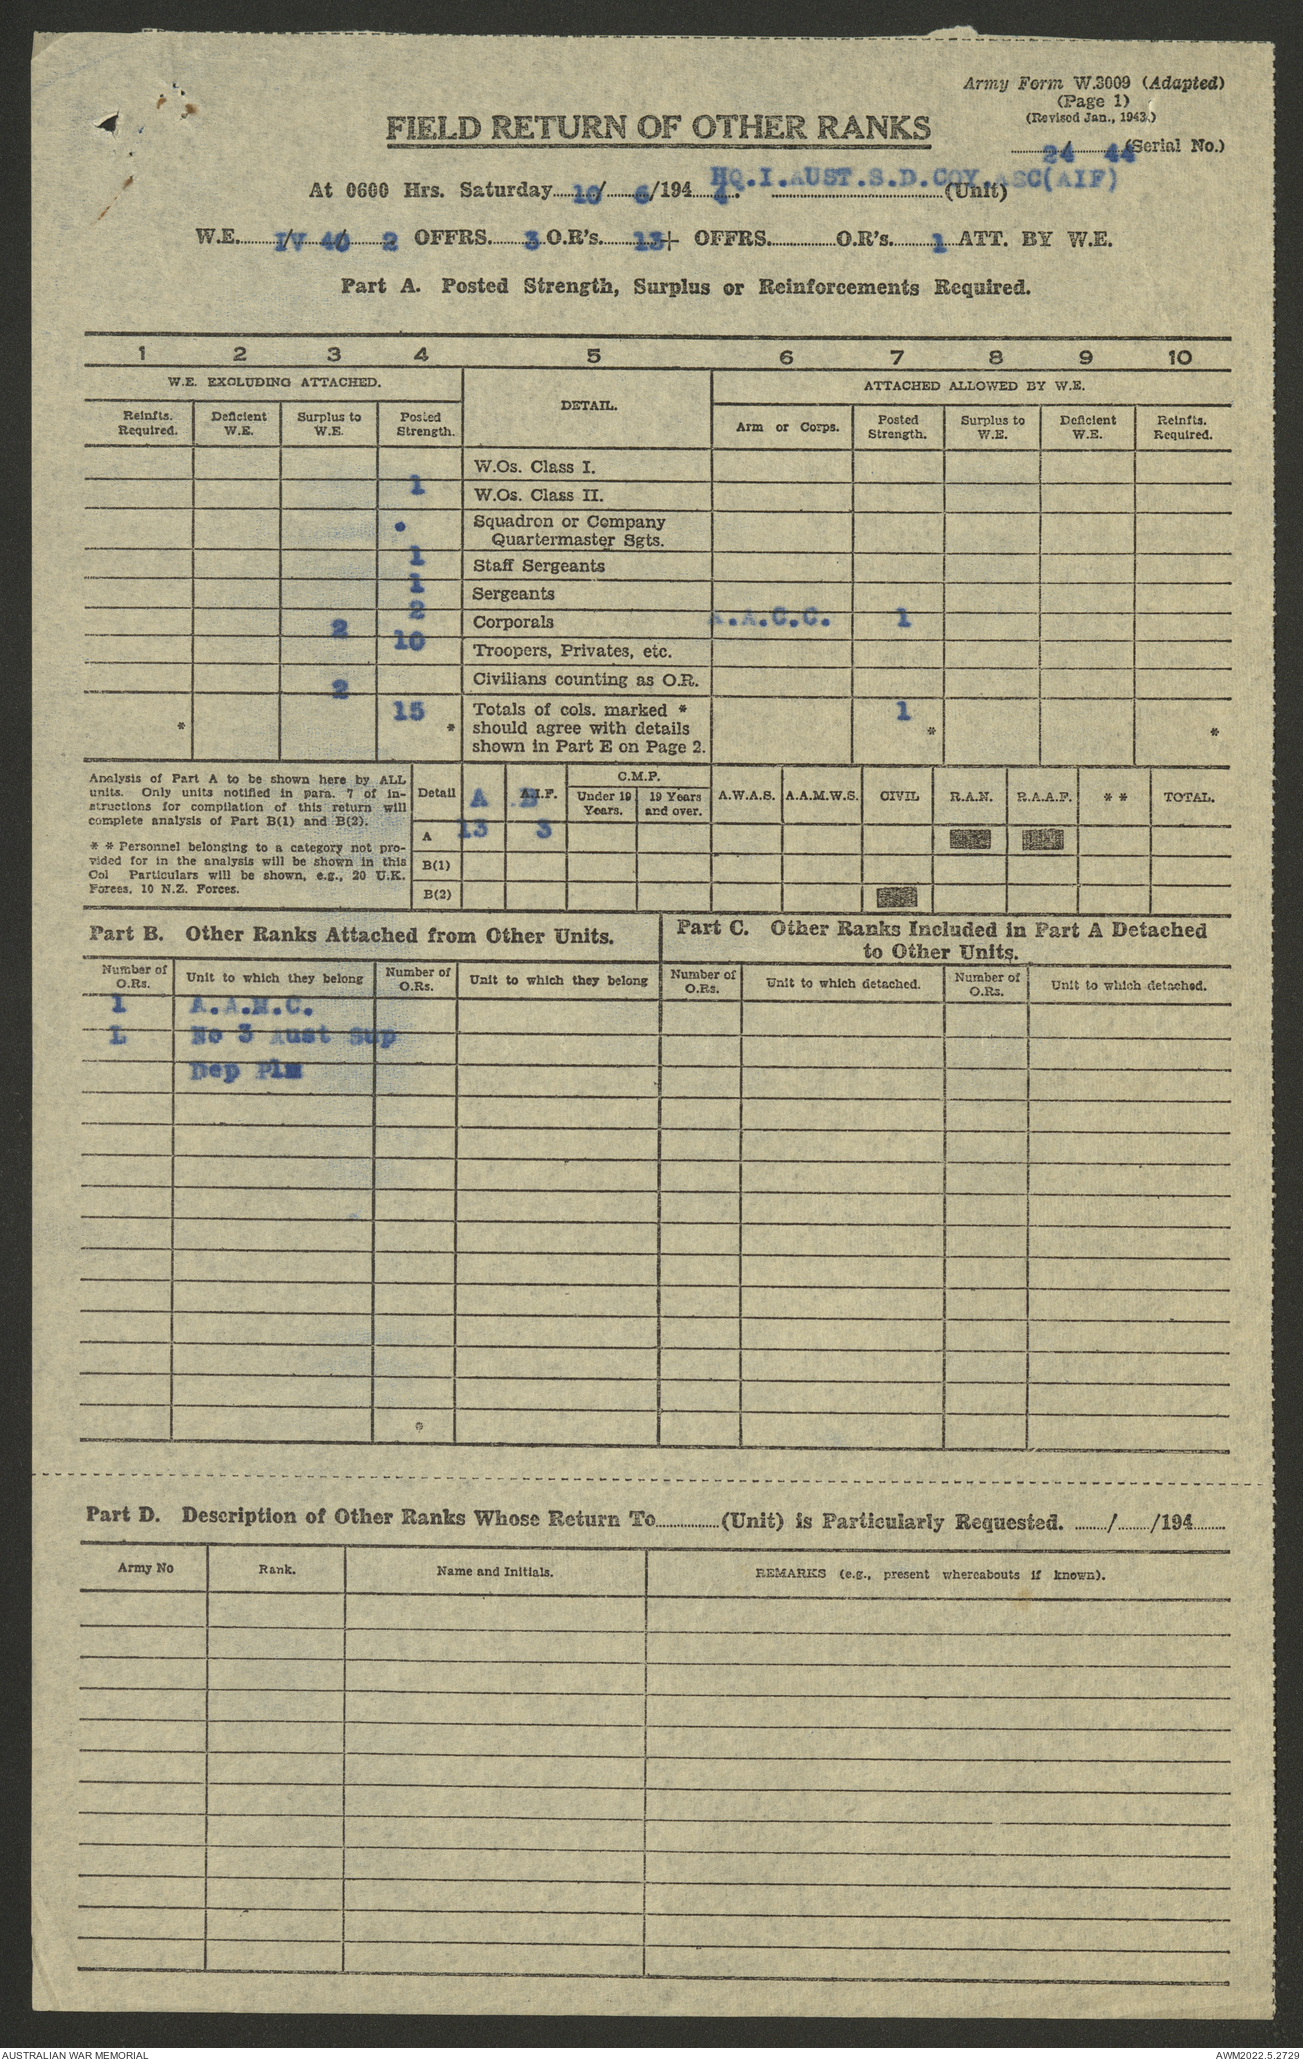 Army Form W.3009 (Adapted)
(Page 1)
(Revised Jan., 1943.)
24 44 (Serial No.)
FIELD RETURN OF OTHER RANKS
At 0600 Hrs. Saturday 10/6/1944. HQ.I.AUST.S.D.COY.ASC(AIF) (Unit)
W.E. IV/40/2 OFFRS. 3 O.R's. 13+ OFFRS. O.R's. 1 ATT. BY W.E.
Part A. Posted Strength, Surplus or Reinforcements Required.
1 2 3 4 5 6 7 8 9 10
W.E. EXCLUDING ATTACHED. DETAIL. ATTACHED ALLOWED BY W.E.
Reinfts. Required. Deficient W.E. Surplus to W.E. Posted Strength. Arm or Corps. Posted Strength. Surplus to W.E. Deficient W.E. Reinfts. Required.
W.Os. Class I.
1 W.Os. Class II.
Squadron or Company
Quartermaster Sgts.
1 Staff Sergeants
1 Sergeants
2 Corporals A.A.C.C. 1
2 10 Troopers, Privates, etc.
Civilians counting as O.R.
2 15 Totals of cols. marked * 1
should agree with details
* * shown in Part E on Page 2. * *
Analysis of Part A to be shown here by ALL
units. Only units notified in para. 7 of in-
structions for compilation of this return will
complete analysis of Part B(1) and B(2).
* * Personnel belonging to a category not pro-
vided for in the analysis will be shown in this
Col Particulars will be shown, e.g., 20 U.K.
Forces, 10 N.Z. Forces.
Detail A B A.I.F. C.M.P. Under 19 Years. 19 Years and over. A.W.A.S. A.A.M.W.S. CIVIL R.A.N. R.A.A.F. * * TOTAL.
A 13 3
B(1)
B(2)
Part B. Other Ranks Attached from Other Units.
Part C. Other Ranks Included in Part A Detached
to Other Units.
Number of O.Rs. Unit to which they belong Number of O.Rs. Unit to which they belong Number of O.Rs. Unit to which detached. Number of O.Rs. Unit to which detached.
1 A.A.M.C.
1 No 3 Aust Sup
Dep Pln
*
Part D. Description of Other Ranks Whose Return To (Unit) is Particularly Requested. / /194
Army No Rank. Name and Initials. REMARKS (e.g., present whereabouts if known).
AUSTRALIAN WAR MEMORIAL AWM2022.5.2729